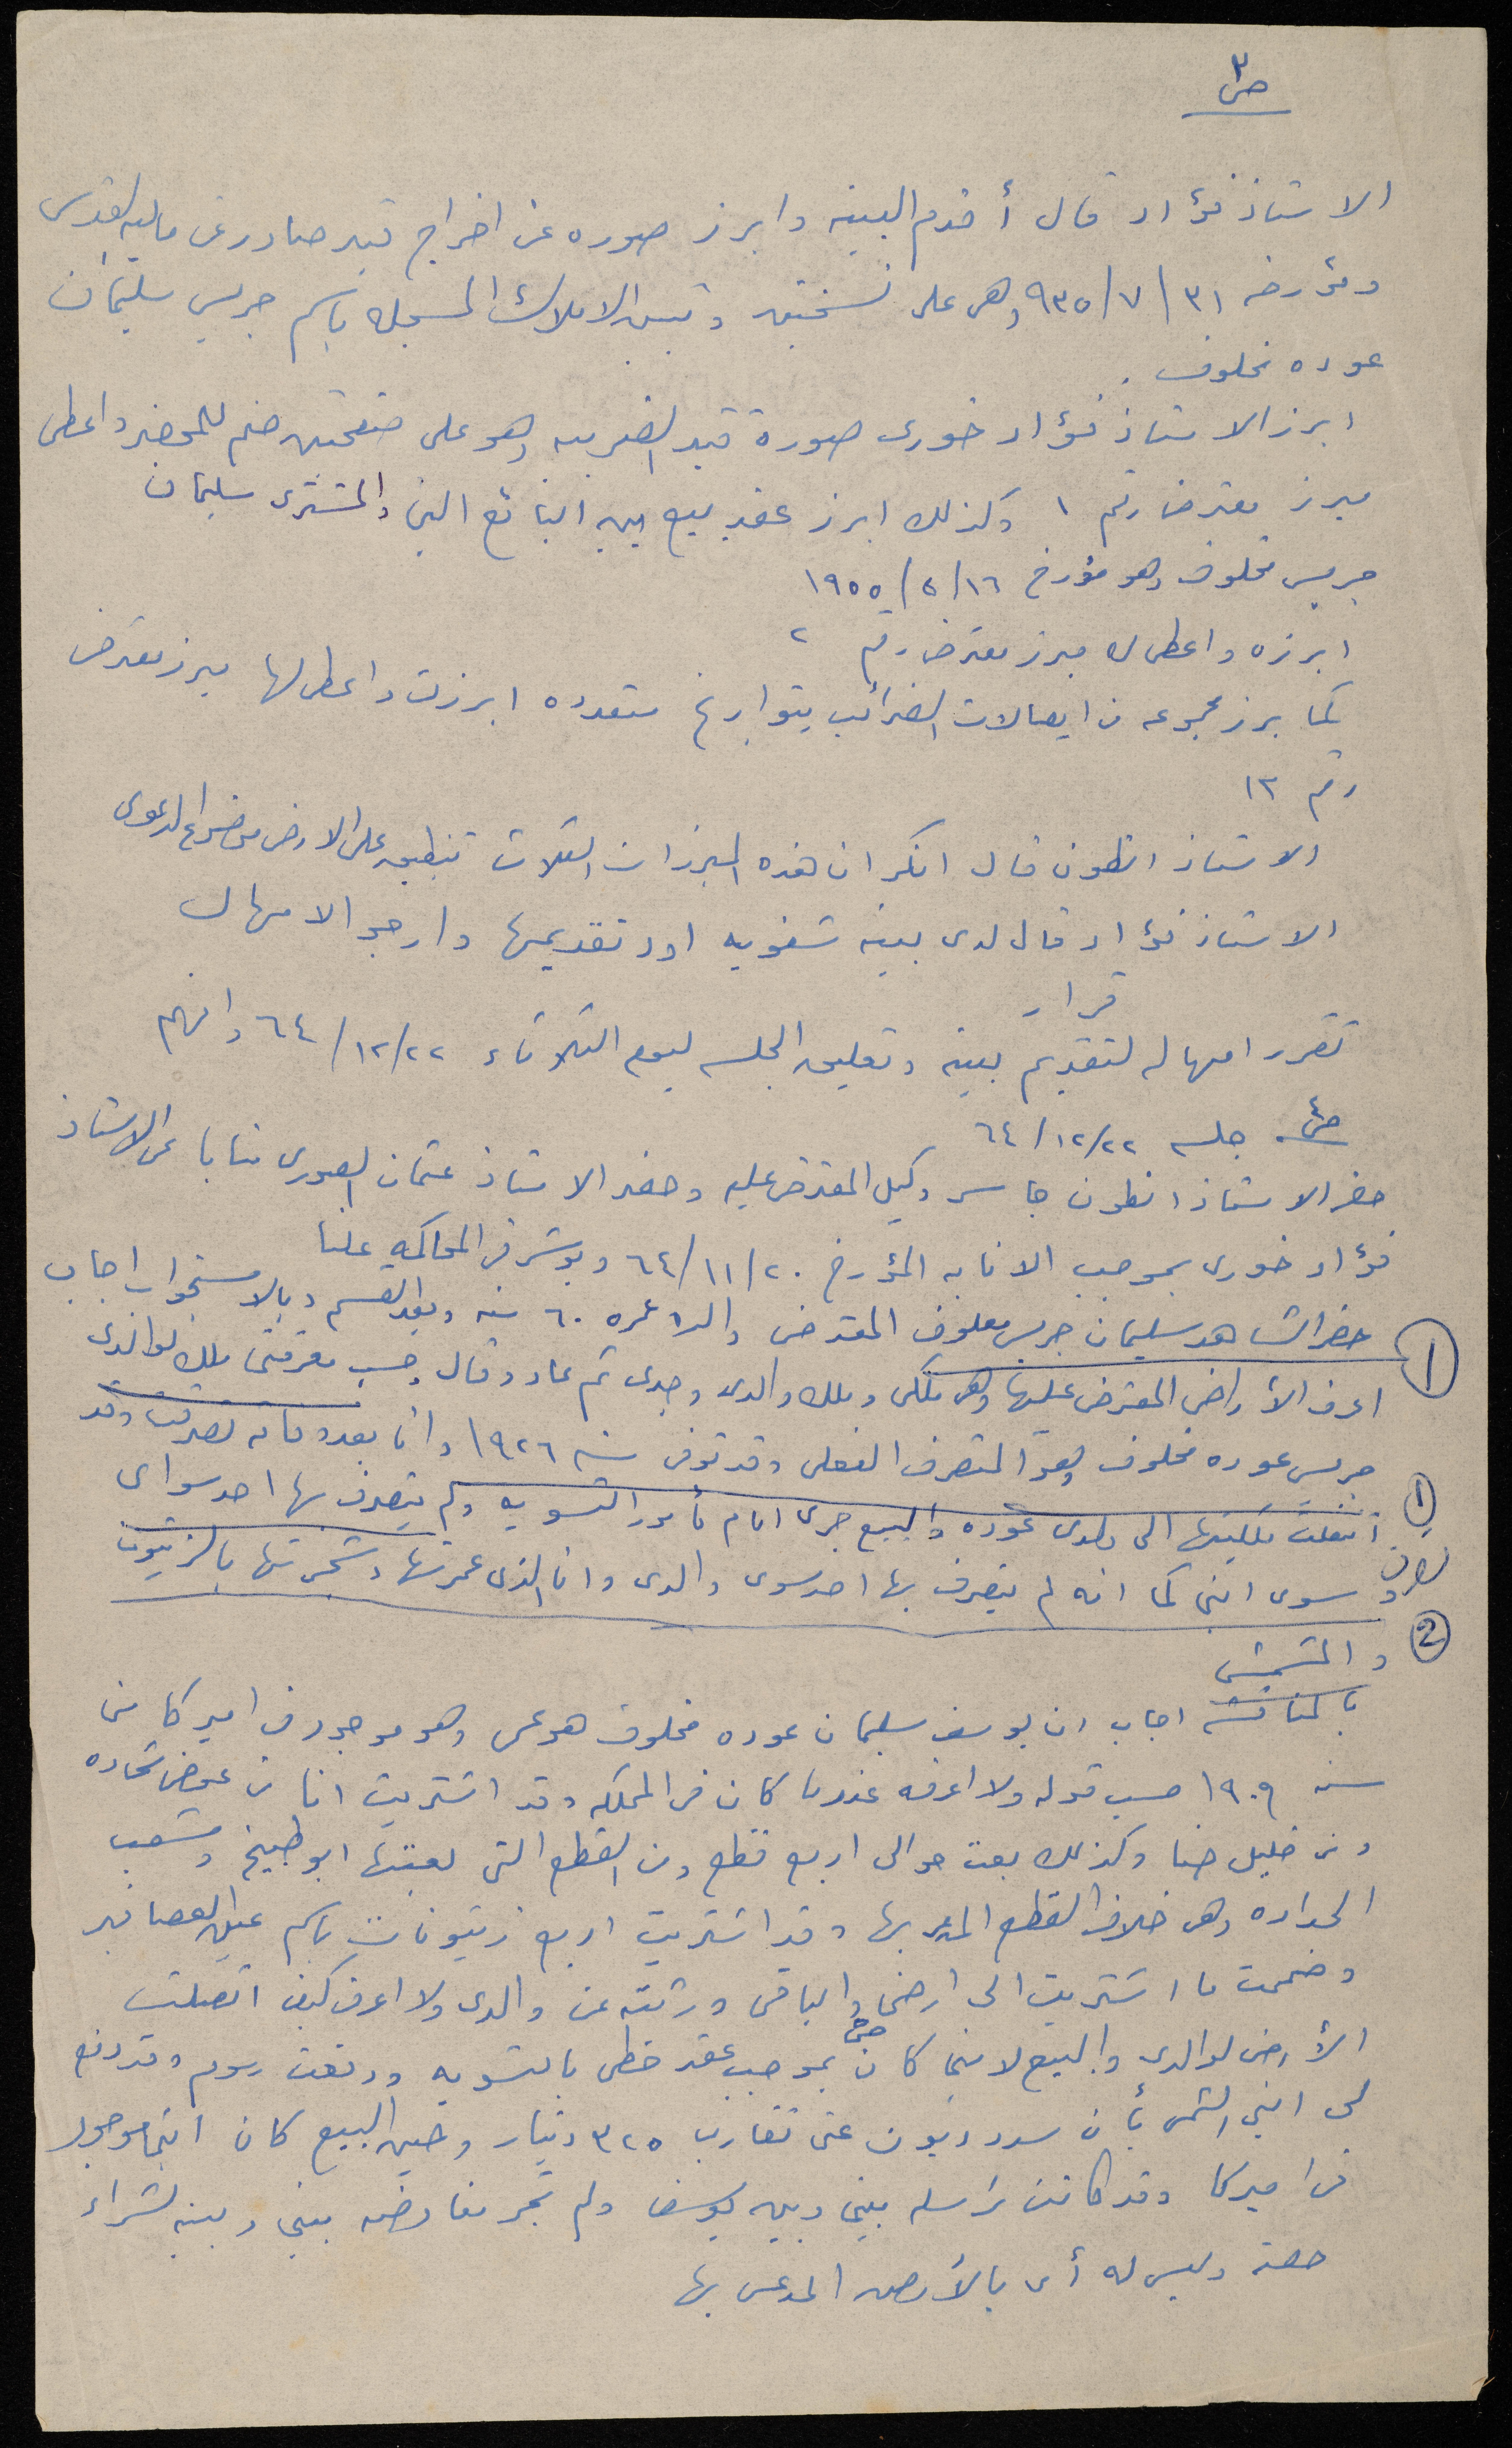 ص٣
الاستاذ فؤاد قال أقدم البينه وابرز صوره عن اخراج قيد صادر عن ماليه القدس
ومؤرخه ٣١/٧/٩٣٥ وهي على نسختين وتبين الاملاك المسجله باسم جريس سليمان
عوده مخلوف.
ابرز الاستاذ فؤاد خوري صورة قيد الضريبه وهو على صفحتين ضم للمحضر واعطى
مبرز معترض رقم ١ وكذلك ابرز عقد بيع بين البائع الين والمشتري سليمان
جريس مخلوف وهو مؤرخ ١٦/٥/١٩٥٥
ابرزه واعطى له مبرز معترض رقم ٢
كما برز مجموعه من ايصالات الضرائب بتواريخ متعدده ابرزت واعطى لها مبرز معترض
رقم ١٣
الاستاذ انطون قال انكر ان هذه المبرزات الثلاث تنطبق على الارض موضوع الدعوى
الاستاذ فؤاد قال لدي بينه شفويه اود تقديمها وارجو الامهال
قرار
تقرر امهاله لتقديم بينه وتعليق الجلسه ليوم الثلاثاء ٢٢/١٢/٦٤ وافهم
ص٤ جلسه ٢٢/١٢/٦٤
حضر الاستاذ انطون جاسر وكيل المعترض عليه وحضر الاستاذ عثمان الصوري منابا عن الاستاذ
فؤاد خوري بموجب الانابه المؤرخ ٢٠/١١/٦٤ وبوشر في المحاكمه علنا
① حضر الشاهد سليمان جريس معلوف المعترض والده عمره ٦٠ سنه وبعد القسم وبالاستجواب اجاب
اعرف الأراضي المعترض عليها وهي ملكي وملك والدي وجدي ثم عاد وقال حسب معرفتي ملك لوالدي
جريس عوده مخلوف وهو المتصرف الفعلي وقد توفي سنه ١٩٢٦ وانا بعد وفاته تصرفت وقد
① انتقلت ملكيتها الى ولدي عوده والبيع جرى امام مأمور التسويه ولم يتصرف بها احد سواي
سوى ابني كما انه لم يتصرف بها احد سوى والدي وانا الذي عمرتها وشجرتها بالزيتون
② والمشمش
بالمناقشه اجاب ان يوسف سليمان عوده مخلوف هو عمي وهو موجود في اميركا من
سنه ١٩٠٩ حسب قوله ولا اعرفه عندما كان في المملكه وقد اشتريت انا من عوض شحاده
ومن خليل حنا وكذلك بعت حوالي اربع قطع ومن القطع التي بعتها ابو طبيخ وشعب
الحداده وهي خلاف القطع المدعى بها وقد اشتريت اربع زيتونات باسم عين العصافير
وضممت ما اشتريت الى ارضي والباقي ورثته عن والدي ولا اعرف كيف انتقلت
الأرض لوالدي والبيع لابني كان بموجب عقد خطي بالتسويه ودفعت رسوم وقد دفع
لي ابني الثمن بأن سدد ديون عني تقارب ٣٢٥ دينار وحين البيع كان ابني موجود
في اميركا وقد كانت مراسله بيني وبين يوسف ولم تجر مفاوضه بيني وبينه لشراء
حصته وليس له أي بالأرض المدعى بها